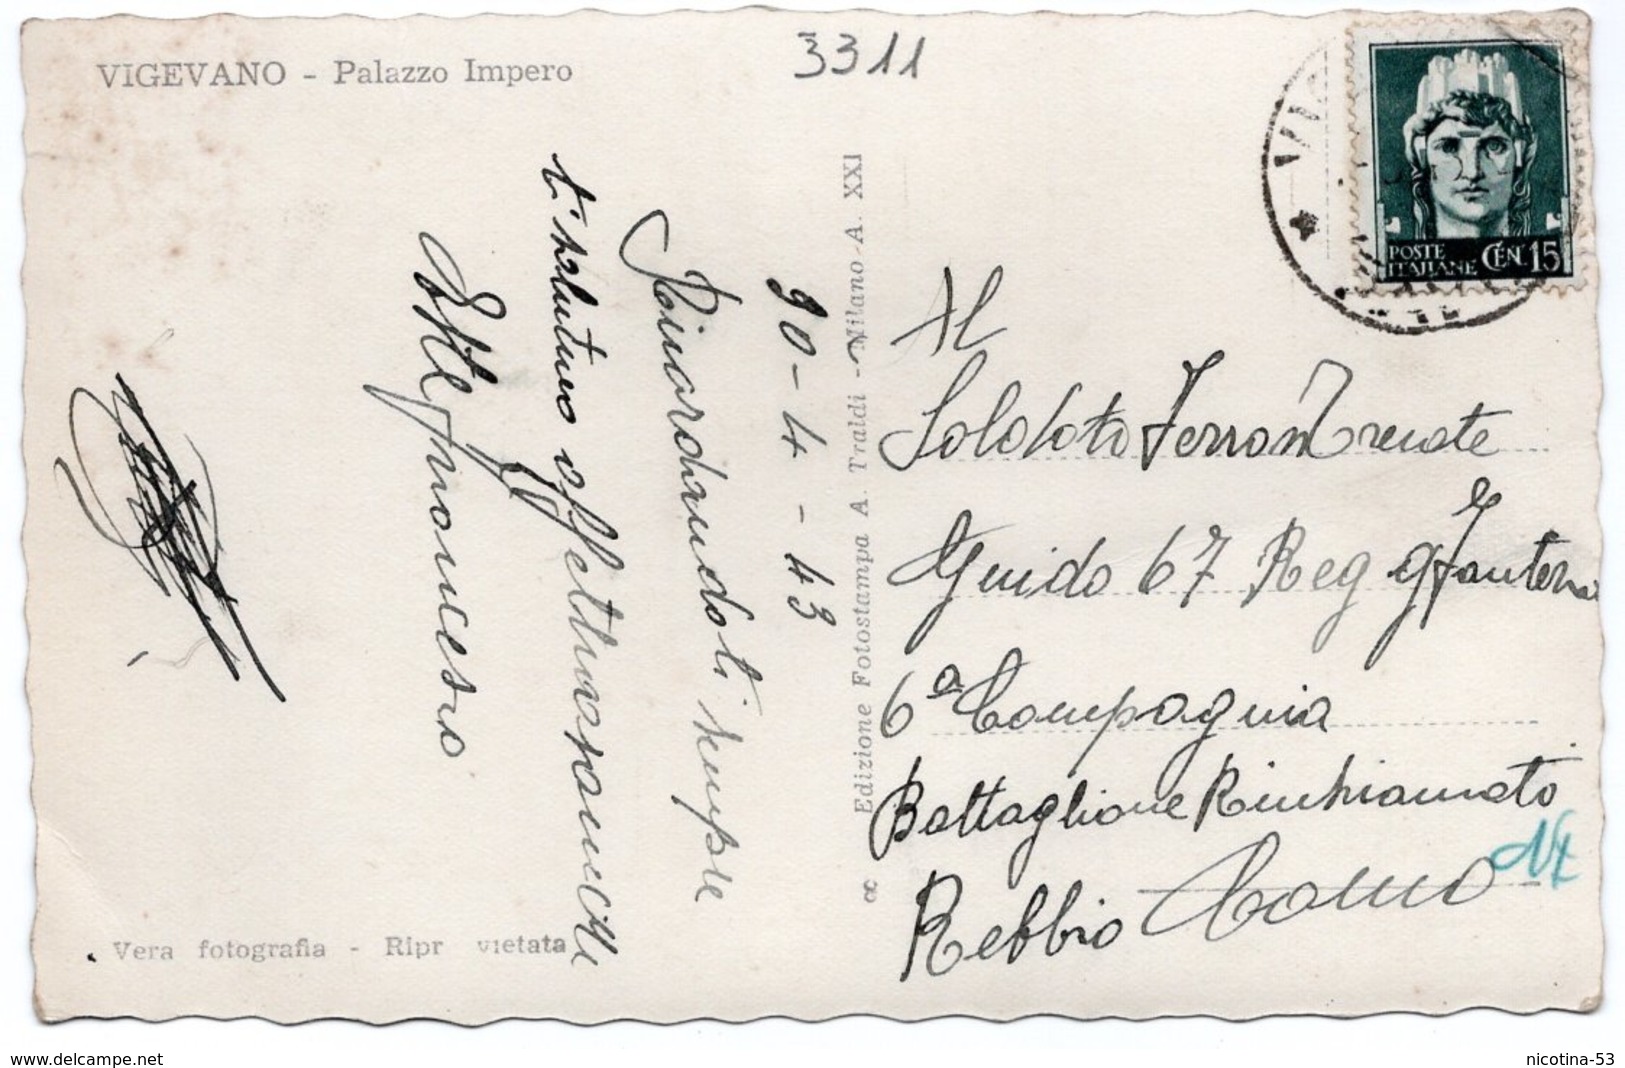 VIGEVANO - Palazzo Impero
3311
POSTE
ITALIANE CEN. 15
90-4-43
Ricuardandoti sempre
t'salutino affettuosamente
Edizione Fotostampa A. Traldi - Milano A. XXI
Al
Soldato Ferrari Trecate
Guido 67 Reg Fanteria
6ª Compagnia
Battaglione Rinchiamato
Rebbio Como
Vera fotografia - Ripr vietata
www.delcampe.net
nicotina-53